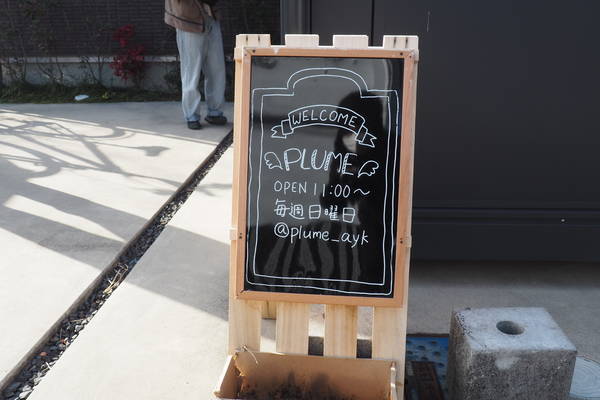 WELCOME
PLUME
OPEN 11:00～
毎週日曜日
@plume_ayk